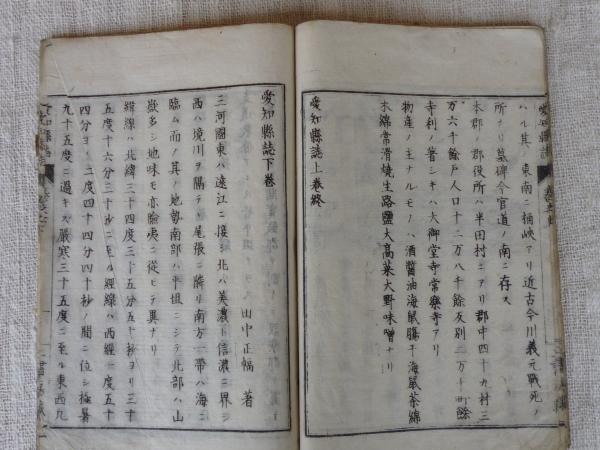 ハル其ノ東南ニ桶峽アリ近古今川義元戰死ノ
所ナリ墓碑今官道ノ南ニ存ス
本郡ノ郡役所ハ半田村ニアリ郡中四十九村三
万六千餘戸人口十二万八千餘反別二万千町餘
寺刹ノ著シキハ大御堂寺常樂寺アリ
物産ノ主ナルモノハ酒醬油海鼠膓干海鼠茶綿
木綿常滑燒生路鹽大高菜大野味噌ナリ
愛知縣誌上卷終
愛知縣誌下卷
田中正幅 著
三河國東ハ遠江ニ接シ北ハ美濃信濃ニ界シ
西ハ境川ヲ隔テ尾張ニ隣リ南方一帶ハ海ニ
臨ム而ノ其ノ地勢南部ハ平坦ニシテ北部ハ山
嶽多シ地味モ亦險夷ニ從ヒテ異ナリ
緯線ハ北緯三十四度三十五分五十秒ヨリ三十
五度十六分三十秒ニ至ル經線ハ西經一度五十
四分ヨリ二度四十四分四十秒ノ間ニ位シ極暑
九十五度ニ過キス嚴寒三十五度ニ至ル東西九